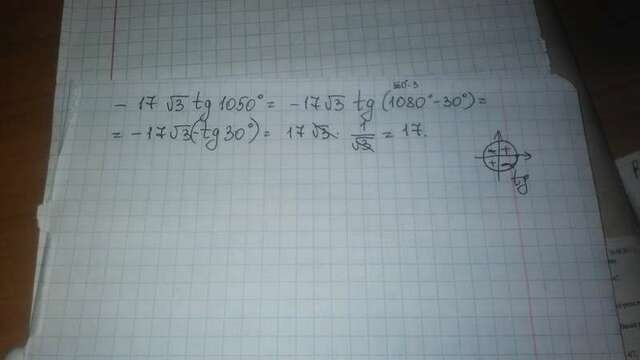 360°·3
- 17 √3 tg 1050° = -17√3 tg (1080° - 30°) =
= -17√3(-tg 30°) = 17 √3 · 1/√3 = 17.
- +
+ -
tg